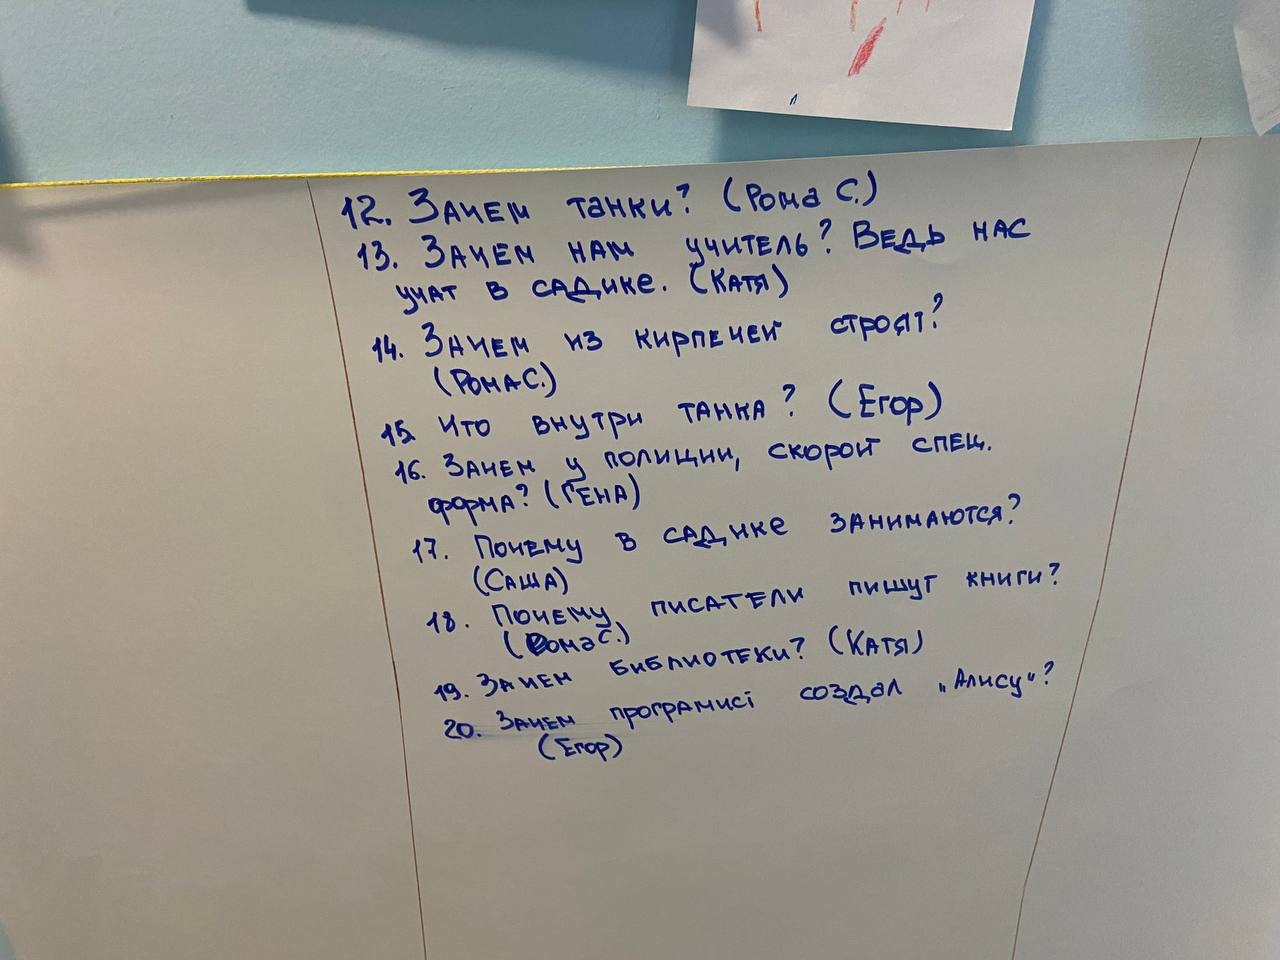 12. Зачем танки? (Рома С.)
13. Зачем нам учитель? Ведь нас
учат в садике. (Катя)
14. Зачем из кирпечей строят?
(Рома С.)
15. Что внутри танка? (Егор)
16. Зачем у полиции, скорой спец.
форма? (Гена)
17. Почему в садике занимаются?
(Саша)
18. Почему писатели пишут книги?
(Рома С.)
19. Зачем библиотеки? (Катя)
20. Зачем програмист создал „Алису"?
(Егор)